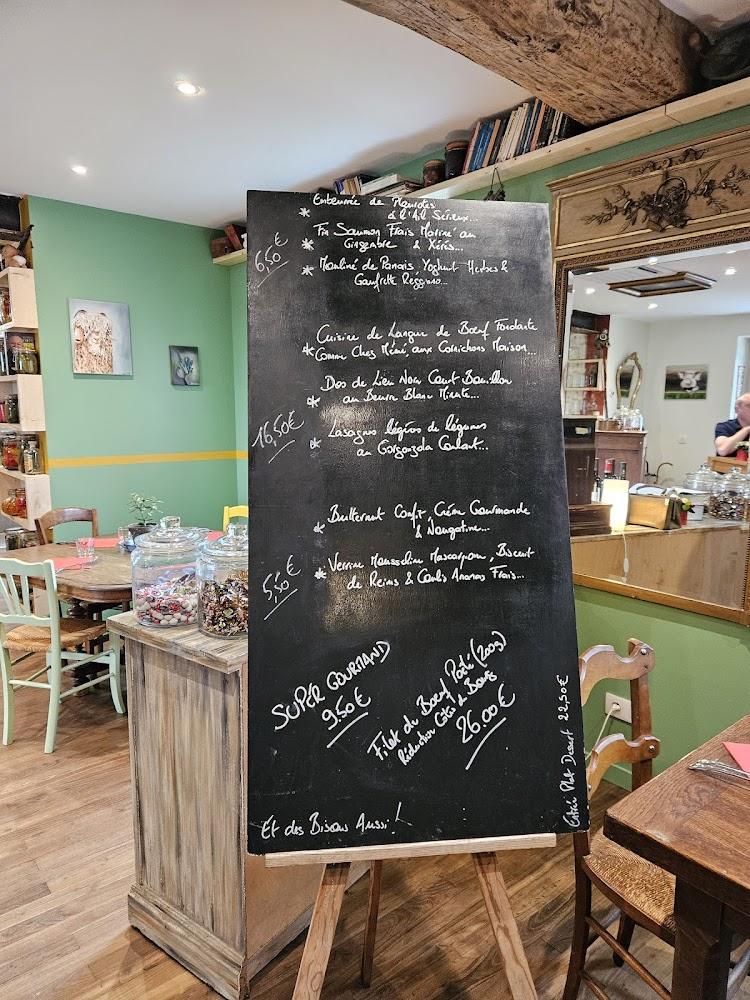 * Entourée de Planches
à l'Ail Sérieux...
* Fin Saumon Frais Mariné au
Gingembre & Xérès...
6,50€
* Mouliné de Panais, Yoghurt Herbes &
Gaufrette Reggiano...
* Cuisine de Langue de Bœuf Fondante
Comme Chez Mémé aux Cornichons Maison...
* Dos de Lieu Noir Court Bouillon
au Beurre Blanc Minute...
16,50€
* Lasagnes légères de légumes
au Gorgonzola Coulant...
* Butternut Confit, Crème Gourmande
& Nougatine...
5,50€
* Verrine Mousseline Mascarpone, Biscuit
de Reims & Coulis Ananas Frais...
SUPER GOURMAND
9.50€
Filet de Bœuf Poêlé (200g)
Réduction Côtes de Bourg
26.00€
Entrée Plat Dessert 22,50€
Et des Bisous Aussi!